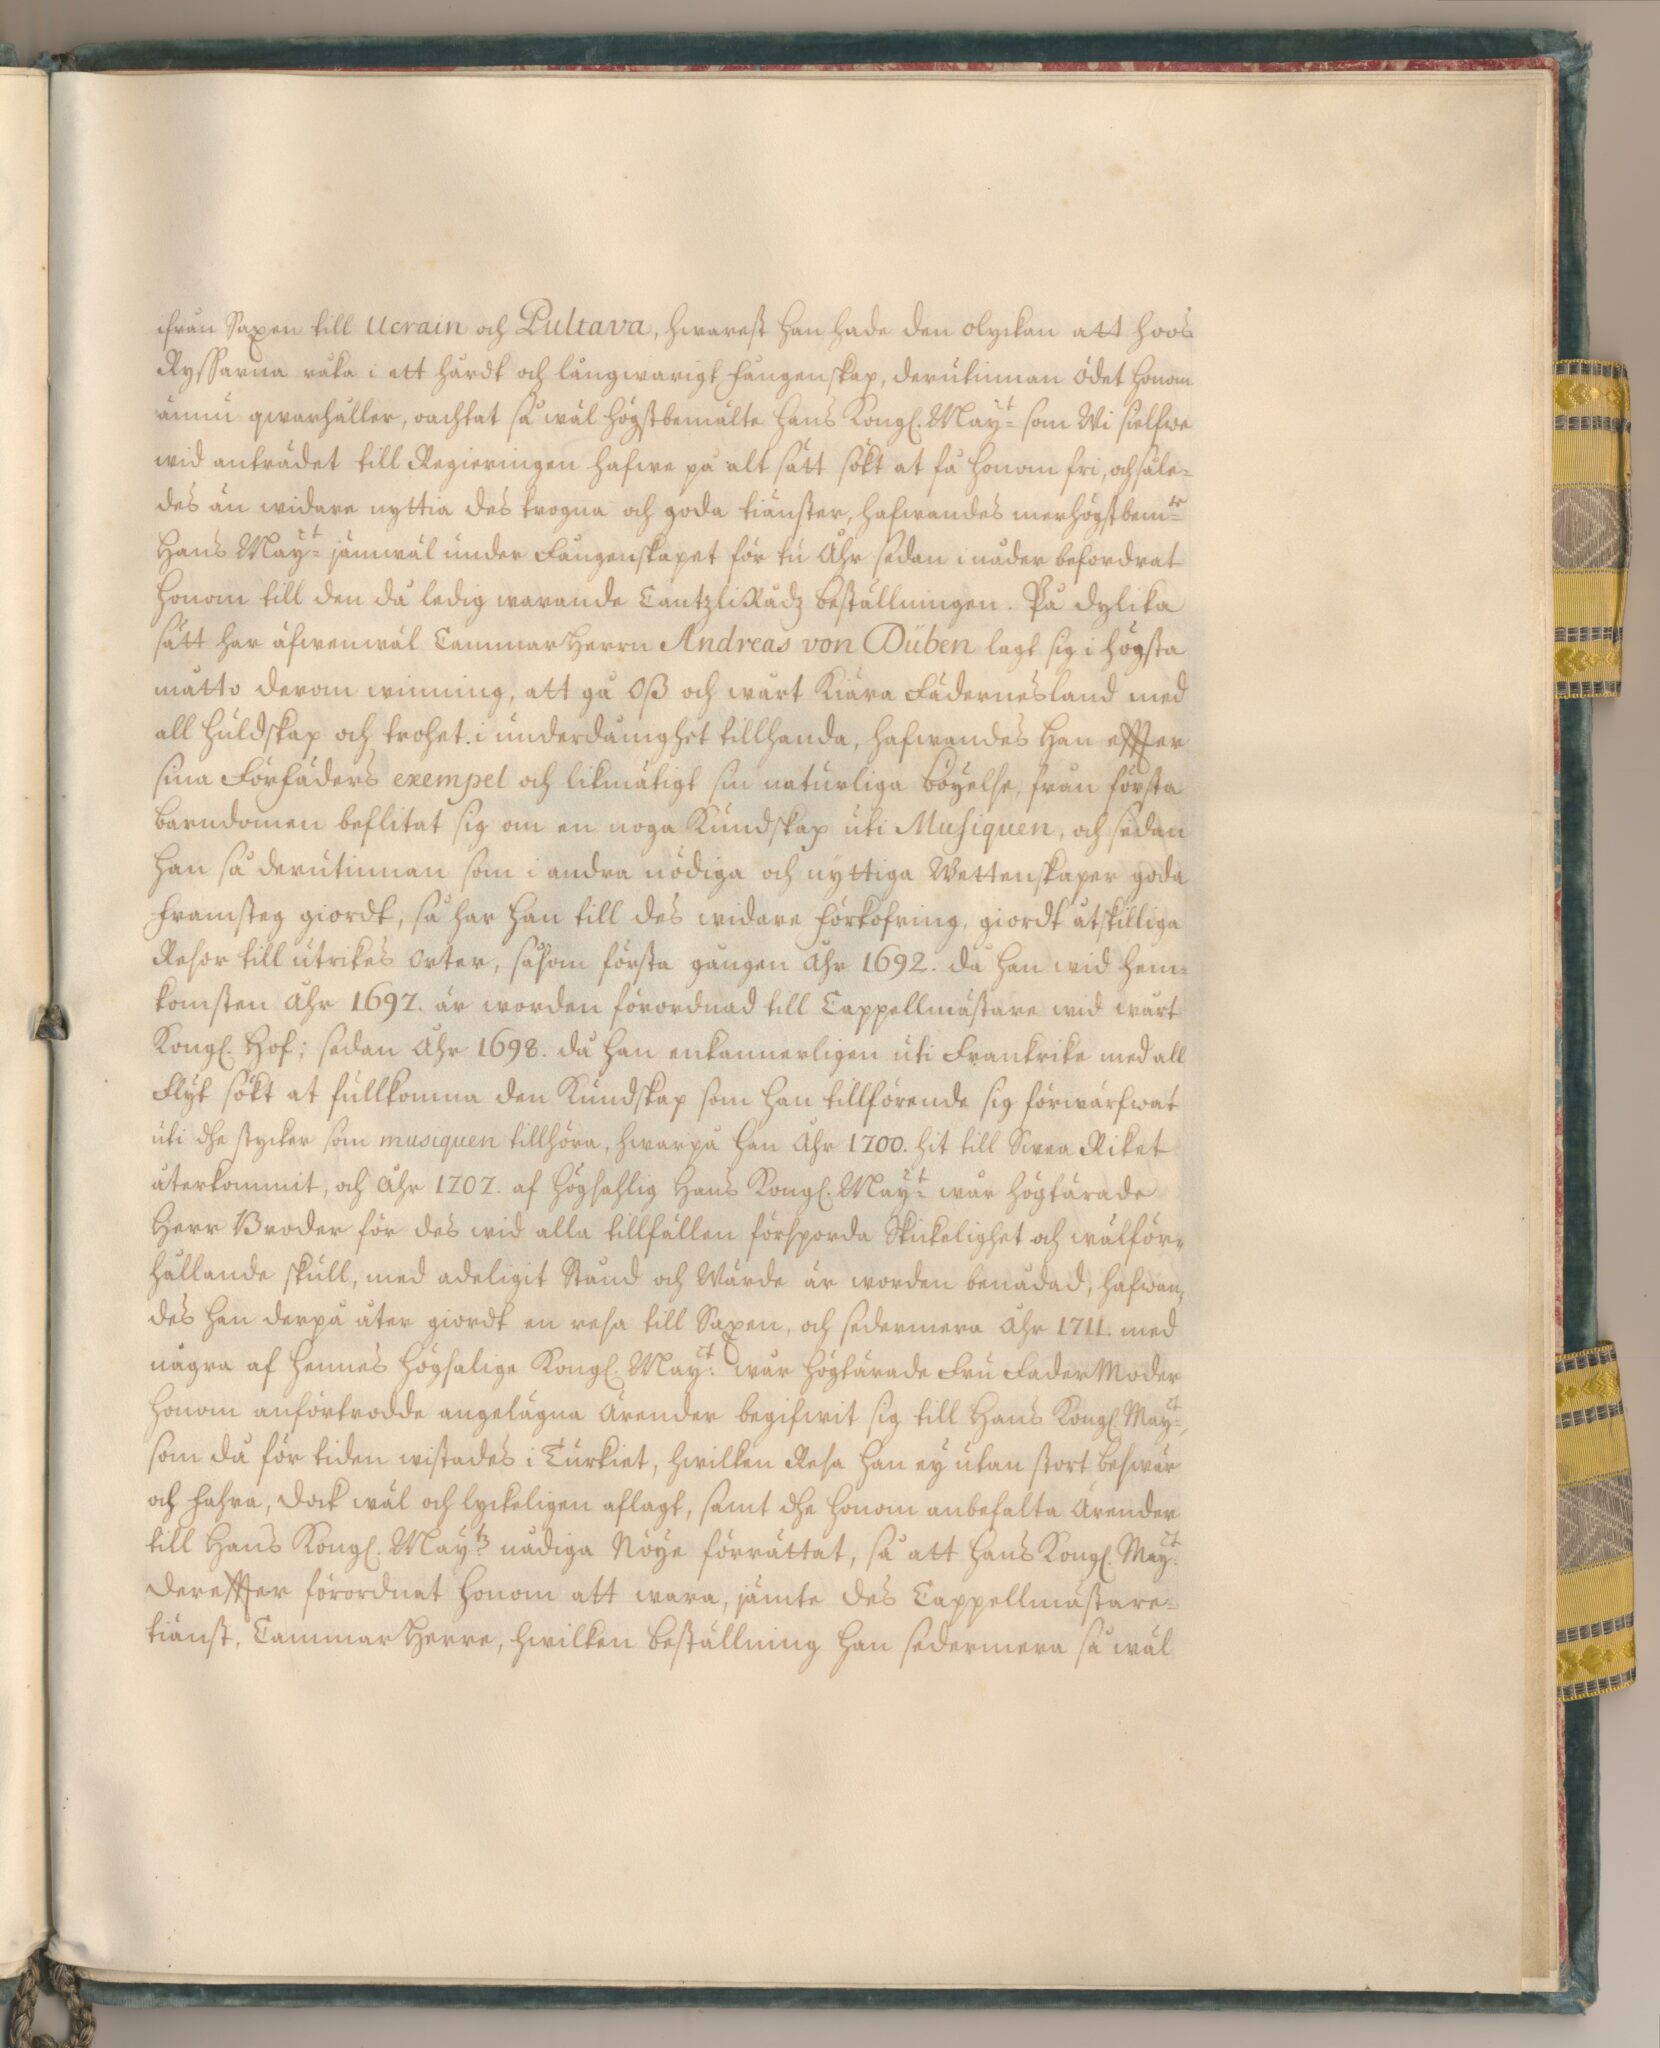 ifrån Saxen till Ucrain och Pultava, hwarest han hade den olyckan att hoos
Ryssarna råka i ett hårdt och långwarigt Fångenskap, derutinnan ödet honom
ännu qwarhåller, oachtat så wäl högstbemälte Hans Kongl. May:t som Wi sielfwe
wid anträdet till Regieringen hafwe på alt sätt sökt at få honom fri, och såle=
des än widare nyttia des trogna och goda tiänster, hafwandes merhögstbem:te
Hans May:t jämwäl under Fångenskapet för tu Åhr sedan i nåder befordrat
honom till den då ledig warande CantzliRådz beställningen. På dylika
sätt har äfwenwäl CammarHerrn Andreas von Düben lagt sig i högsta
måtto derom winning, att gå Oß och wårt Kiära Fädernesland med
all huldskap och trohet i underdånighet tillhanda, hafwandes Han effter
sina Förfäders exempel och likmätigt sin naturliga böyelse, från första
barndomen beflitat sig om en noga Kundskap uti Musiquen, och sedan
han så derutinnan som i andra nödiga och nyttiga Wettenskaper goda
framsteg giordt, så har Han till des widare förkofring, giordt åtskilliga
Resor till utrikes Orter, såsom första gången Åhr 1692. då han wid hem=
komsten Åhr 1697. är worden förordnad till Cappellmästare wid wårt
Kongl. Hof; sedan Åhr 1698. då han enkannerligen uti Frankrike med all
Flijt sökt at fullkomna den Kundskap som han tillförende sig förwärfwat
uti dhe stycker som musiquen tillhöra, hwarpå han Åhr 1700. hit till Swea Riket
återkommit, och Åhr 1707. af Högsahlig Hans Kongl. May:t wår Högtärade
Herr Broder för des wid alla tillfällen försporda Skickelighet och wälför=
hållande skull, med adeligit Stånd och Wärde är worden benådad, hafwan=
des han derpå åter giordt en resa till Saxen, och sedermera Åhr 1711. med
några af Hennes Högsalige Kongl. May:t wår Högtärade Fru FaderModer
honom anförtrodde angelägna Ärender begifwit sig till Hans Kongl. May:t,
som då för tiden wistades i Turkiet, hwilken Resa han ey utan stort beswär
och fahra, dock wäl och lyckeligen aflagt, samt dhe honom anbefalta Ärender
till Hans Kongl. May:tz nådiga Nöye förrättat, så att Hans Kongl. May:t
dereffter förordnat honom att wara, jämte des Cappellmästare=
tiänst, CammarHerre, hwilken beställning han sedermera så wäl